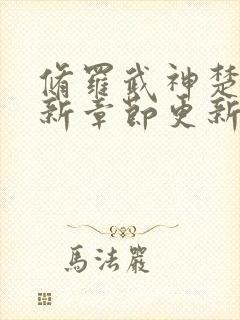 脩羅武神楚
新章節更新
馬法嚴